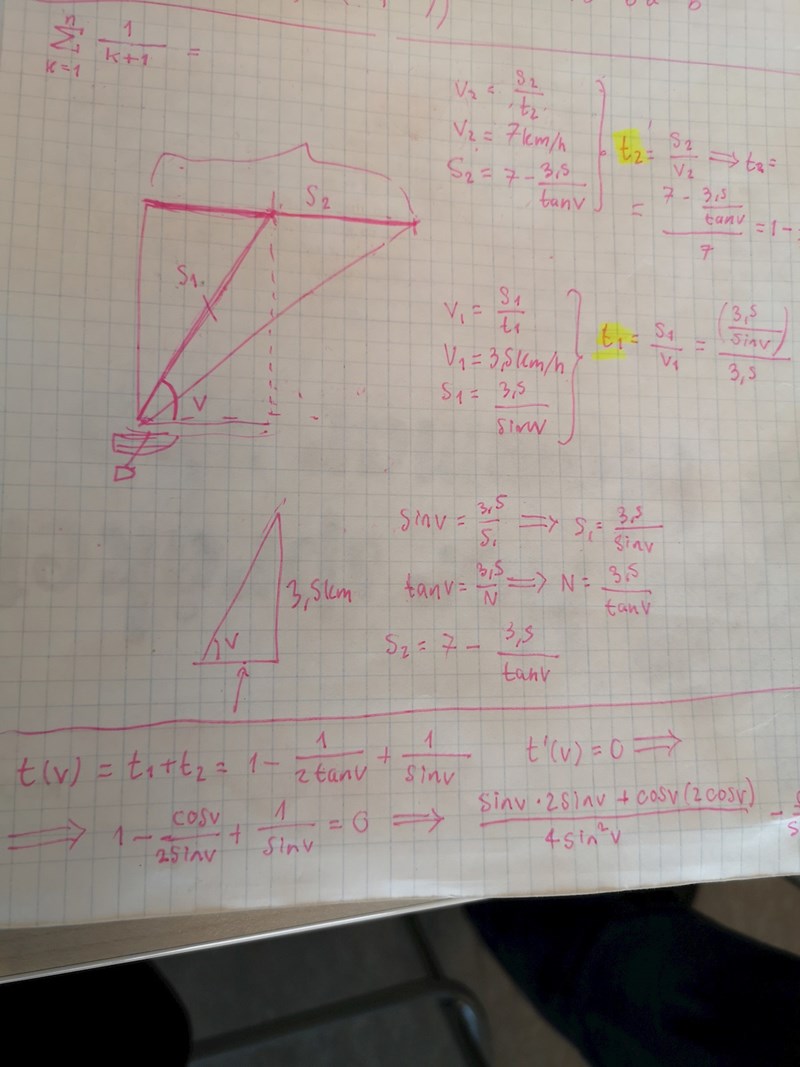 n
∑ 1/(k+1) =
k=1
V₂ = S₂/t₂
V₂ = 7km/h
S₂ = 7 - 3,5/tanv
t₂ = S₂/V₂ ⟹ t₂ =
= (7 - 3,5/tanv)/7 = 1 -
S₂
S₁
v
V₁ = S₁/t₁
V₁ = 3,5km/h
S₁ = 3,5/sinv
t₁ = S₁/V₁ = (3,5/sinv)/3,5
3,5km
v
sinv = 3,5/S₁ ⟹ S₁ = 3,5/sinv
tanv = 3,5/N ⟹ N = 3,5/tanv
S₂ = 7 - 3,5/tanv
t(v) = t₁ + t₂ = 1 - 1/(2tanv) + 1/sinv t'(v) = 0 ⟹
⟹ 1 - cosv/(2sinv) + 1/sinv = 0 ⟹ (sinv · 2sinv + cosv(2cosv))/(4sin²v) -